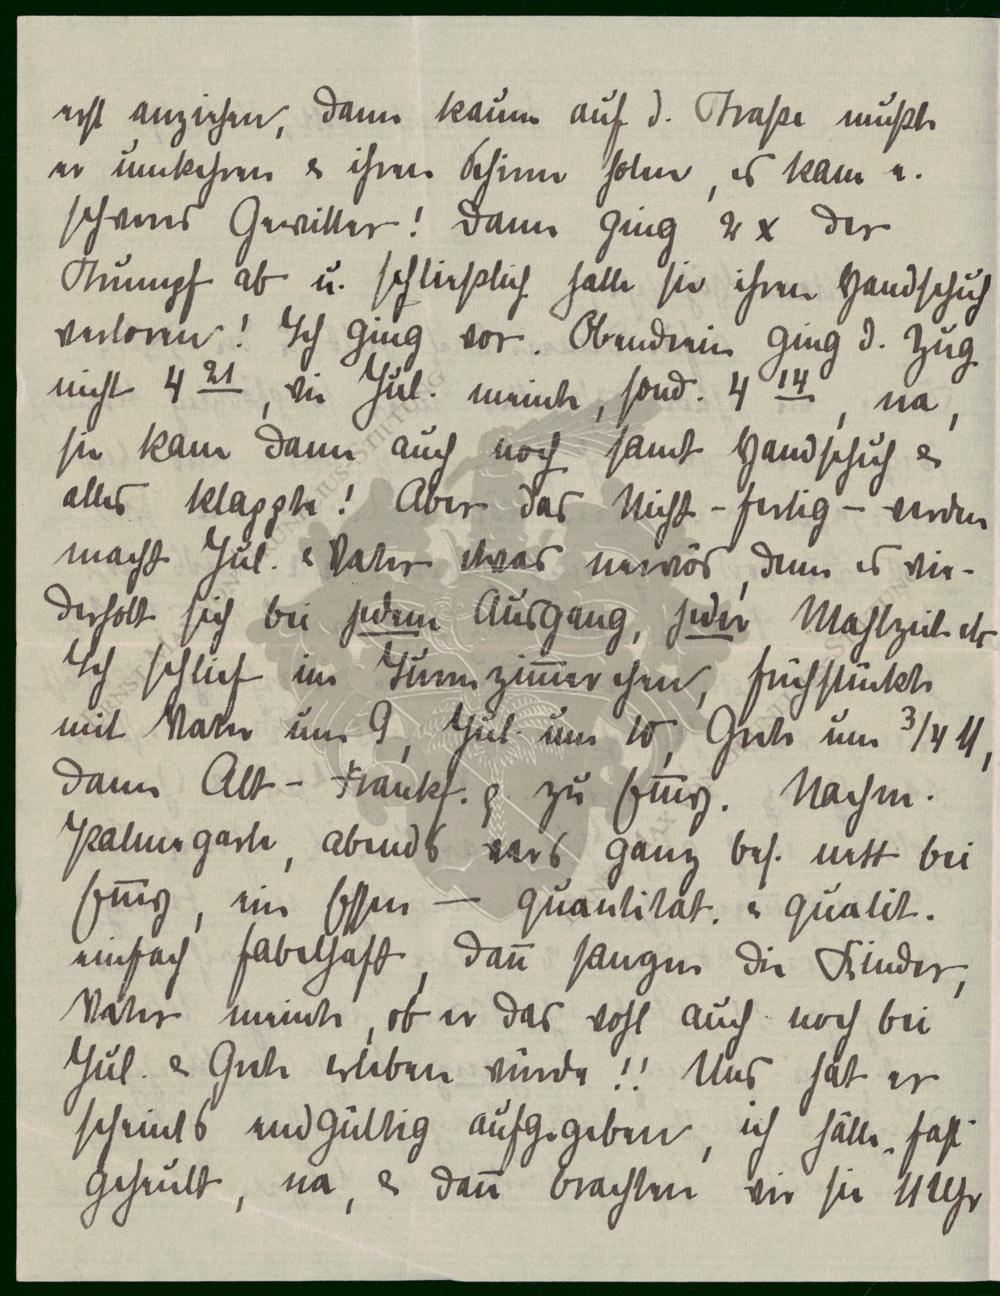 erst anziehen, dann kaum auf d. Straße mußte
er umkehren & ihren Schirm holen, es kam e.
schweres Gewitter! Dann ging 2 x der
Strumpf ab u. schließlich hatte sie ihren Handschuh
verloren! Ich ging vor. Obendrein ging d. Zug
nicht 4 21, wie Jul. meinte, sond. 4 14, na,
sie kam dann auch noch samt Handschuh &
alles klappte! Aber das Nicht-fertig-werden
macht Jul. & Vater etwas nervös, denn es wie-
derholt sich bei jedem Ausgang, jeder Mahlzeit etc
Ich schlief im Turmzimmerchen, frühstückte
mit Vater um 9, Jul. um 10, Grete um 3/4 11,
dann Alt-Frankf. zu. Nachm.
Palmegarte, abends wars ganz bes. nett bei
, ein Essen — quantität. & qualit.
einfach fabelhaft, dann sangen die Kinder,
Vater meinte, ob er das wohl auch noch bei
Jul. & Grete erleben würde!! Uns hat er
scheints endgültig aufgegeben, ich hätte fast
geheult, na, & dann brachten wir sie 11 Uhr